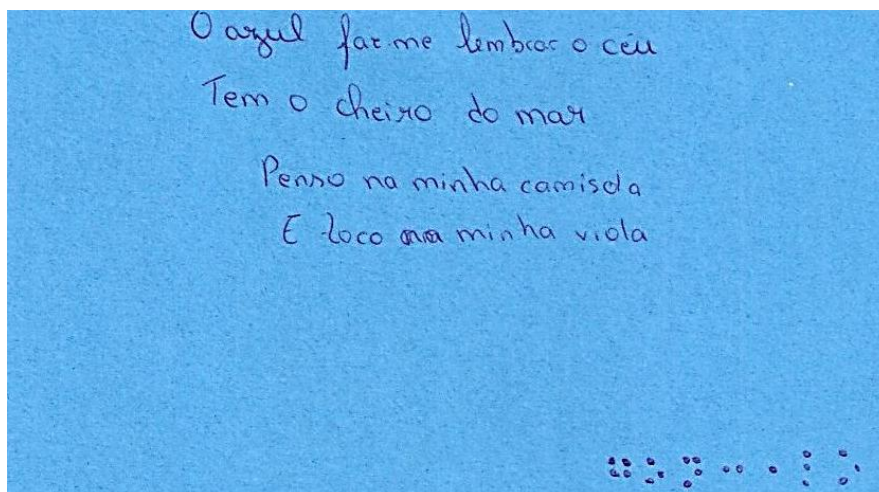 O azul faz-me lembrar o céu
Tem o cheiro do mar
Penso na minha camisola
E toco na minha viola